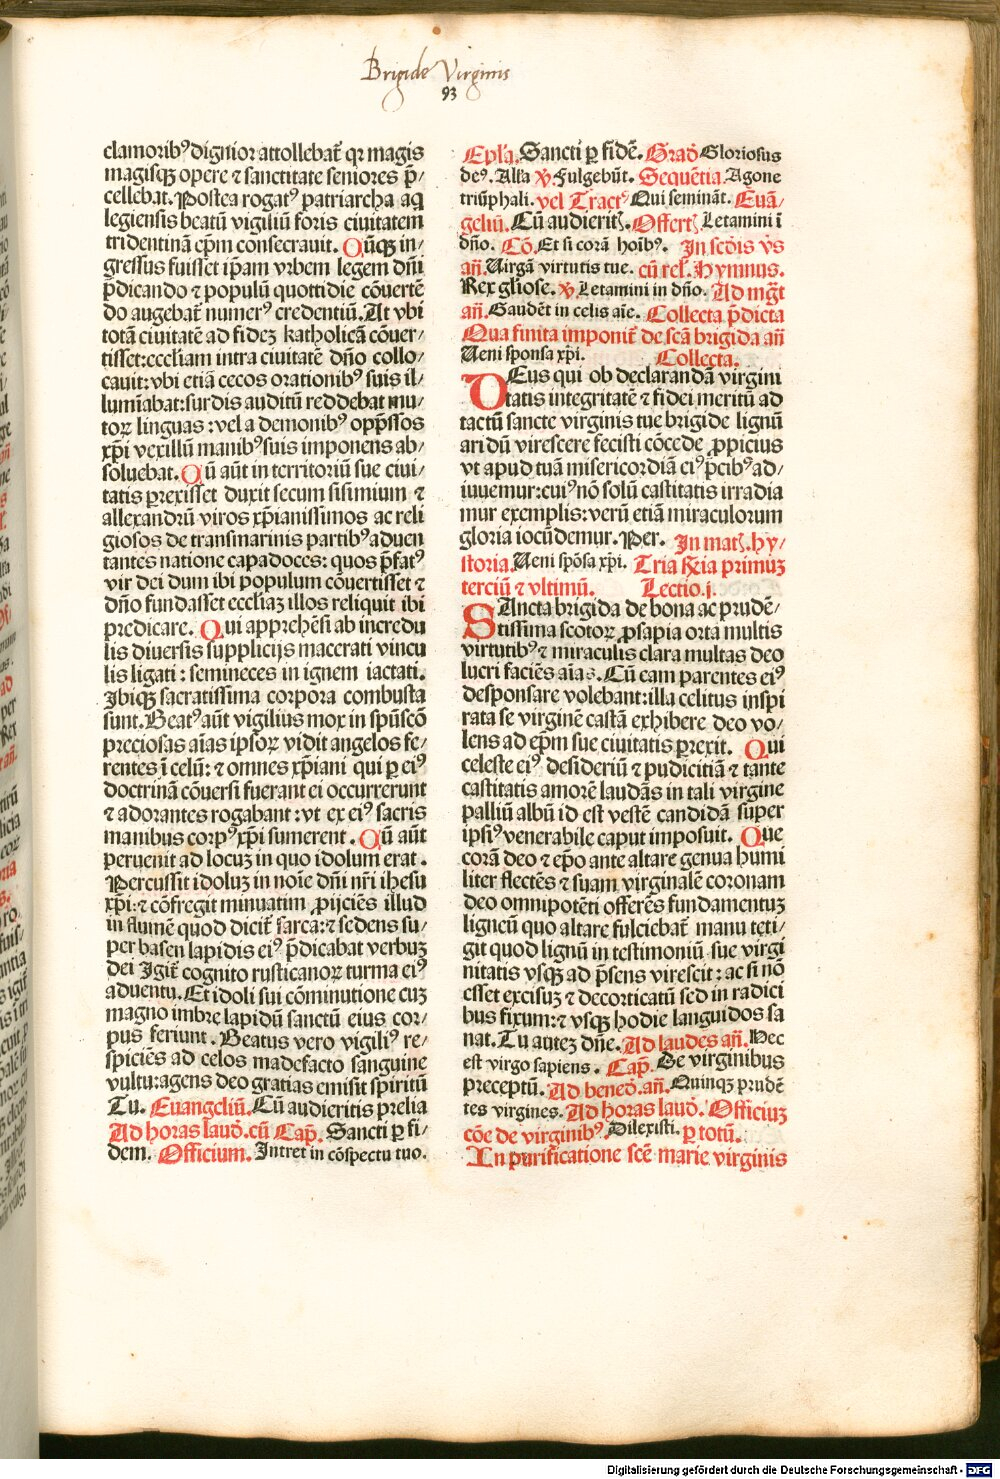 Brigide Virginis
93
clamoribꝰ dignior attollebat̃ qꝛ magis
magisqꝫ opere ⁊ sanctitate seniores p̃/
cellebat. Postea rogatꝰ patriarcha aq
legiensis beatũ vigiliũ foris ciuitatem
tridentinã ep̃m consecrauit. Qũqꝫ in/
gressus fuisset ip̃am vrbem legem dñi
p̃dicando ⁊ populũ quottidie cõuertẽ
do augebat̃ numerꝰ credentiũ. At vbi
totã ciuitatẽ ad fideꝫ katholicã cõuer/
tisset: eccl̃iam intra ciuitatẽ dño collo/
cauit: vbi etiã cecos orationibꝰ suis il/
lumĩabat: surdis auditũ reddebat mu/
toꝝ linguas: vel a demonibꝰ opp̃ssos
xp̃i vexillũ manibꝰ suis imponens ab/
soluebat. Qũ aũt in territoriũ sue ciui/
tatis ꝑrexisset duxit secum sisimium ⁊
allexandrũ viros xp̃ianissimos ac reli
giosos de transmarinis partibꝰ aduen
tantes natione capadoces: quos p̃fatꝰ
vir dei dum ibi populum cõuertisset ⁊
dño fundasset eccl̃iaꝫ illos reliquit ibi
predicare. Qui apprehẽsi ab incredu
lis diuersis supplicijs macerati vincu
lis ligati: semineces in ignem iactati.
Ibiqꝫ sacratissima corpora combusta
sunt. Beatꝰ aũt vigilius mox in spũscõ
preciosas aĩas ipsoꝝ vidit angelos fe/
rentes ĩ celũ: ⁊ omnes xp̃iani qui ꝑ eiꝰ
doctrinã cõuersi fuerant ei occurrerunt
⁊ adorantes rogabant: vt ex eiꝰ sacris
manibus corpꝰ xp̃i sumerent. Qũ aũt
peruenit ad locuꝫ in quo idolum erat.
Percussit idoluꝫ in noĩe dñi nr̃i ihesu
xp̃i: ⁊ cõfregit minuatim ꝓijciẽs illud
in flumẽ quod dicit̃ sarca: ⁊ sedens su/
per basen lapidis eiꝰ p̃dicabat verbuꝫ
dei Igit̃ cognito rusticanoꝝ turma eiꝰ
aduentu. Et idoli sui cõminutione cuꝫ
magno imbre lapidũ sanctũ eius cor/
pus feriunt. Beatus vero vigiliꝰ re/
spiciẽs ad celos madefacto sanguine
vultu: agens deo gratias emisit spiritũ
Tu. Euangeliũ. Cũ audieritis prelia
Ad horas laud̃. cũ Cap̃. Sancti ꝑ fi/
dem. Officium. Intret in cõspectu tuo.
Epl̃a. Sancti ꝑ fidẽ. Grad̃ Gloriosus
deꝰ. All̃a ℣. Fulgebũt. Sequẽtia. Agone
triũphali. vel Tractꝰ Qui seminãt. Euã/
geliũ. Cũ audierit̃. Offert̃ Letamini ĩ
dño. Cõ. Et si corã hoĩbꝰ. In scd̃is v̓s
añ. Uirgã virtutis tue. cũ rel̃. Hymnus.
Rex gliose. ℣. Letamini in dño. Ad mg̃t
añ. Gaudẽt in celis aĩe. Collecta p̃dicta
Qua finita imponit̃ de scã brigida añ
Ueni sponsa xp̃i. Collecta.
DEus qui ob declarandã virgini
tatis integritatẽ ⁊ fidei meritũ ad
tactũ sancte virginis tue brigide lignũ
aridũ virescere fecisti cõcede ꝓpicius
vt apud tuã misericordiã eiꝰ p̃cibꝰ ad/
iuuemur: cuiꝰ nõ solũ castitatis irradia
mur exemplis: verũ etiã miraculorum
gloria iocũdemur. Per. In mat̃. hy/
storia. Ueni spõsa xp̃i. Tria R̃ia primuꝫ
terciũ ⁊ vltimũ. Lectio. j.
SAncta brigida de bona ac prudẽ/
tissima scotoꝝ ꝓsapia orta multis
virtutibꝰ ⁊ miraculis clara multas deo
lucri faciẽs aĩas. Cũ eam parentes eiꝰ
desponsare volebant: illa celitus inspi
rata se virginẽ castã exhibere deo vo/
lens ad ep̃m sue ciuitatis ꝑrexit. Qui
celeste eiꝰ desideriũ ⁊ pudicitiã ⁊ tante
castitatis amorẽ laudãs in tali virgine
palliũ albũ id est vestẽ candidã super
ipsiꝰ venerabile caput imposuit. Que
corã deo ⁊ ep̃o ante altare genua humi
liter flectẽs ⁊ suam virginalẽ coronam
deo omnipotẽti offerẽs fundamentuꝫ
ligneũ quo altare fulciebat̃ manu teti/
git quod lignũ in testimoniũ sue virgi
nitatis vsqꝫ ad p̃sens virescit: ac si nõ
esset excisuꝫ ⁊ decorticatũ sed in radici
bus fixum: ⁊ vsqꝫ hodie languidos sa
nat. Tu auteꝫ dñe. Ad laudes añ. Hec
est virgo sapiens. Cap̃. De virginibus
preceptũ. Ad bened̃. añ. Quinqꝫ prudẽ
tes virgines. Ad horas laud̃. Officiuꝫ
cõe de virginibꝰ. Dilexisti. ꝑ totũ.
In purificatione scẽ marie virginis
Digitalisierung gefördert durch die Deutsche Forschungsgemeinschaft - DFG